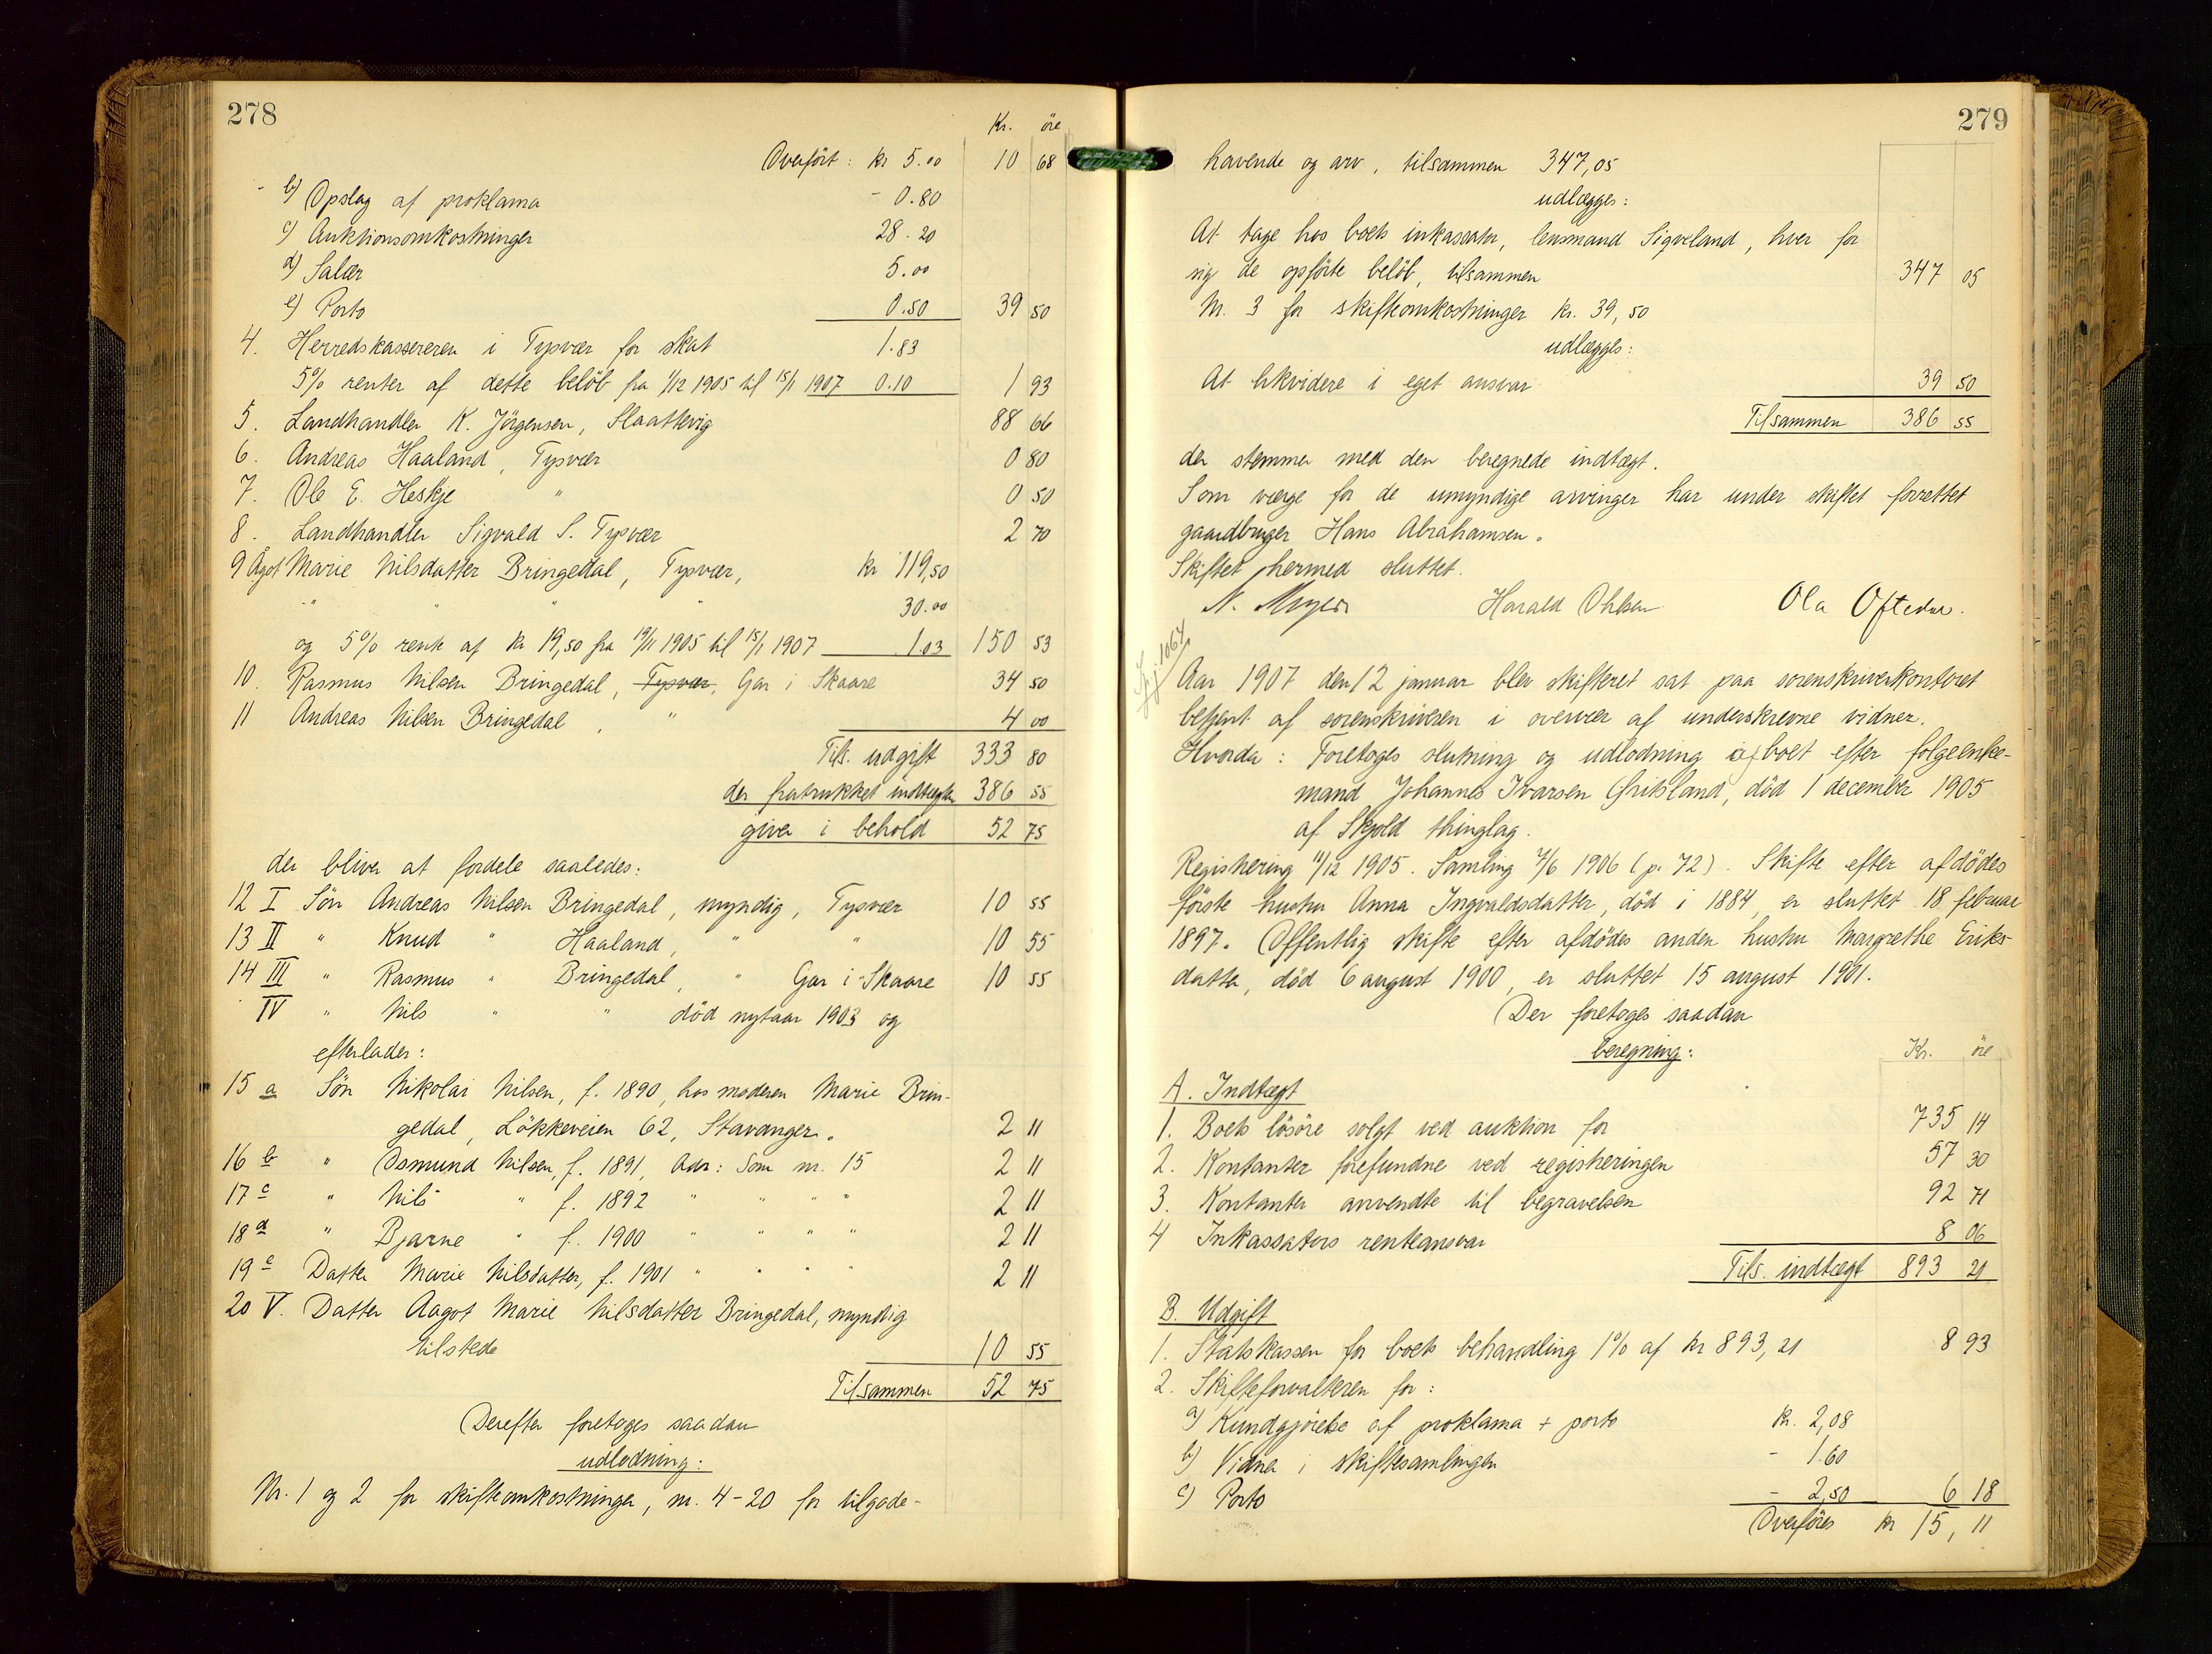 278
Kr. öre
Overfört: kr 5.00 10 68
b) Opslag af proklama - 0.80
c) Auktionsomkostninger 28.20
d) Salær 5.00
e) Porto 0.50 39 50
4. Herredskassereren i Tysvær for skat 1.83
5% renter af dette belöb fra 1/12 1905 til 15/1 1907 0.10 1 93
5. Landhandler K. Jörgensen, Slaattevig 88 66
6. Andreas Haaland, Tysvær 0 80
7. Ole E. Heskje " 0 50
8. Landhandler Sigvald S. Tysvær 2 70
9 Agot Marie Nilsdatter Bringedal, Tysvær, kr 119,50
" " " 30.00
og 5% rente af kr 19,50 fra 19/11 1905 til 15/1 1907 1.03 150 53
10. Rasmus Nilsen Bringedal, Tysvær, Gar i Skaare 34 50
11 Andreas Nilsen Bringedal, " 4 00
Tils. udgift 333 80
der fratrukket indtægten 386 55
giver i behold 52 75
der bliver at fordele saaledes:
12 I Sön Andreas Nilsen Bringedal, myndig, Tysvær 10 55
13 II " Knud " Haaland, " " 10 55
14 III " Rasmus " Bringedal, " Gar i Skaare 10 55
IV " Nils " " död nytaar 1903 og
efterlader:
15 a Sön Nikolai Nilsen, f. 1890, hos moderen Marie Brin-
gedal, Lökkeveien 62, Stavanger. 2 11
16 b " Osmund Nilsen, f. 1891, Adr: Som nr. 15 2 11
17 c " Nils " f. 1892 " " " " 2 11
18 d " Bjarne " f. 1900 " " " " 2 11
19 e Datter Marie Nilsdatter, f. 1901 " " " " 2 11
20 V. Datter Aagot Marie Nilsdatter Bringedal, myndig
tilstede 10 55
Tilsammen 52 75
Derefter foretoges saadan
udlodning:
Nr. 1 og 2 for skifteomkostninger, nr. 4-20 for tilgode-
279
havende og arv, tilsammen 347,05
udlægges:
At tage hos boets inkassator, lensmand Sigveland, hver for
sig de opförte belöb, tilsammen 347 05
Nr. 3 for skifteomkostninger kr. 39,50
udlægges:
At likvidere i eget ansvar 39 50
Tilsammen 386 55
der stemmer med den beregnede indtægt.
Som værge for de umyndige arvinger har under skiftet forrettet
gaardbruger Hans Abrahamsen.
Skiftet hermed sluttet.
N. Meyer Harald Ohlsen Ola Oftedal.
1064
Aar 1907 den 12 januar blev skifteret sat paa sorenskriverkontoret
betjent af sorenskriveren i overvær af underskrevne vidner.
Hvorda: Foretoges slutning og udlodning af boet efter folgeenke-
mand Johannes Ivarsen Gritsland, död 1 december 1905
af Skjold thinglag.
Registrering 11/12 1905. Samling 7/6 1906 (p. 72). Skifte efter afdödes
förste hustru Anna Ingvaldsdatter, död i 1884, er sluttet 18 februar
1897. Offentlig skifte efter afdödes anden hustru Margrethe Eriks-
datter, död 6 august 1900, er sluttet 15 august 1901.
Der foretoges saadan
beregning: Kr. öre
A. Indtægt
1. Boets lösöre solgt ved auktion for 735 14
2. Kontanter forefundne ved registreringen 57 30
3. Kontanter anvendte til begravelsen 92 71
4 Inkassators renteansvar 8 06
Tils. indtægt 893 21
B. Udgift
1. Statskassen for boets behandling 1% af kr 893,21 8 93
2. Skifteforvalteren for:
a) Kundgjörelse af proklama + porto Kr. 2,08
b) Vidner i skiftesamlingen - 1.60
c) Porto - 2,50 6 18
Overföres kr 15, 11